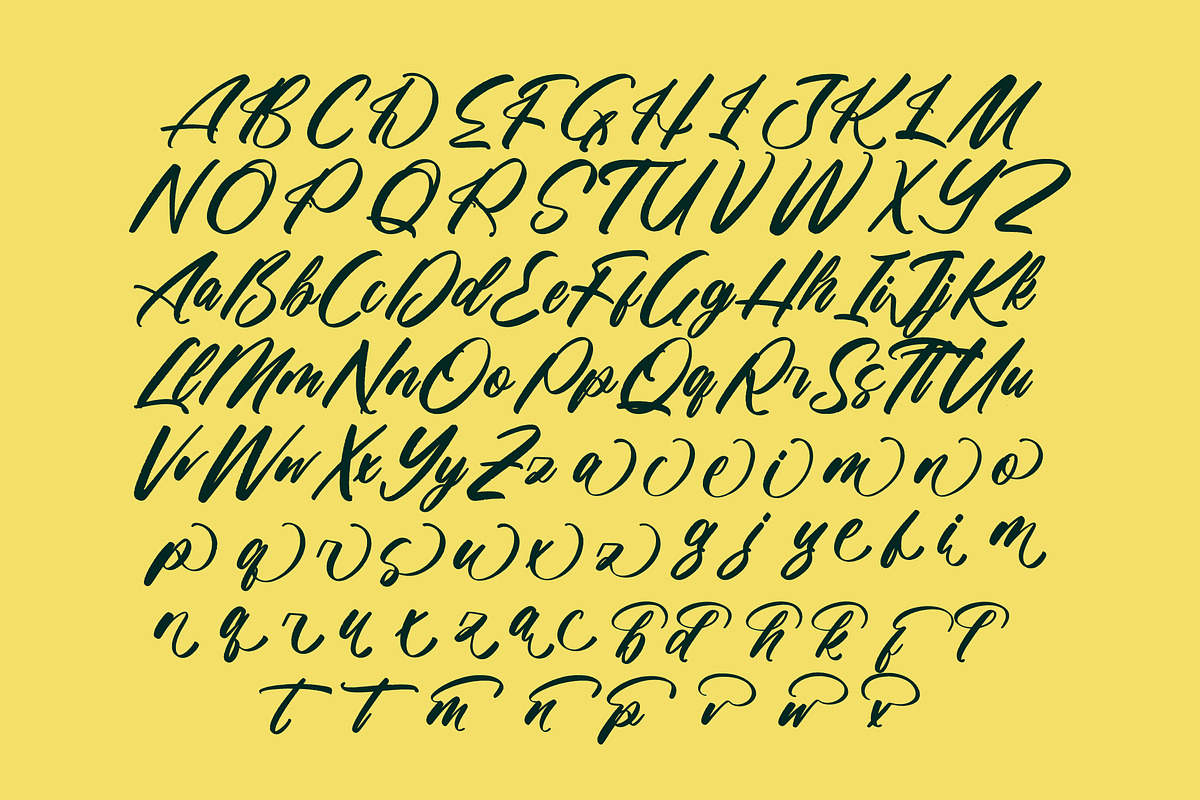 A B C D E F G H I J K L M
N O P Q R S T U V W X Y Z
Aa Bb Cc Dd Ee Ff Gg Hh Ii Jj Kk
Ll Mm Nn Oo Pp Qq Rr Ss Tt Uu
Vv Ww Xx Yy Zz a c e i m n o
p q r s u x z g j y e f i m
n q r u x z a c b d h k f l
t t m n p r w x